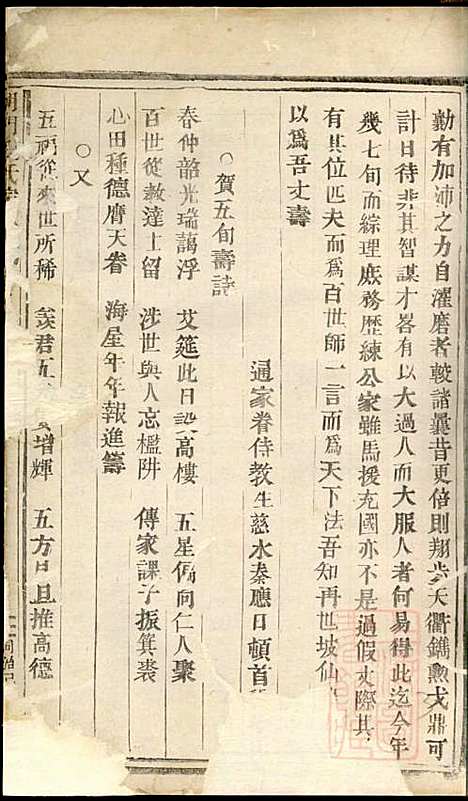 勷有加沛之力自濯磨者較諸曩昔更倍則翔步天衢鐫勲戈鼎可
計日待非其智謀才畧有以大過人而大服人者何易得此迄今年
幾七旬而綜理庶務歷練公家雖馬援充國亦不是過假丈際其
有其位匹夫而爲百世師一言而爲天下法吾知再世坡仙
以爲吾丈壽
通家眷侍教生慈水秦應日頓首
○賀五旬壽詩
春仲韶光瑞藹浮 艾筵此日設高樓 五星偏向仁人聚
百世從教達士留 涉世與人忘檻阱 傳家課子振箕裘
心田種德膺天眷 海屋年年報進籌
○又
五福從來世所稀 羨君五 增輝 五方日且推高德